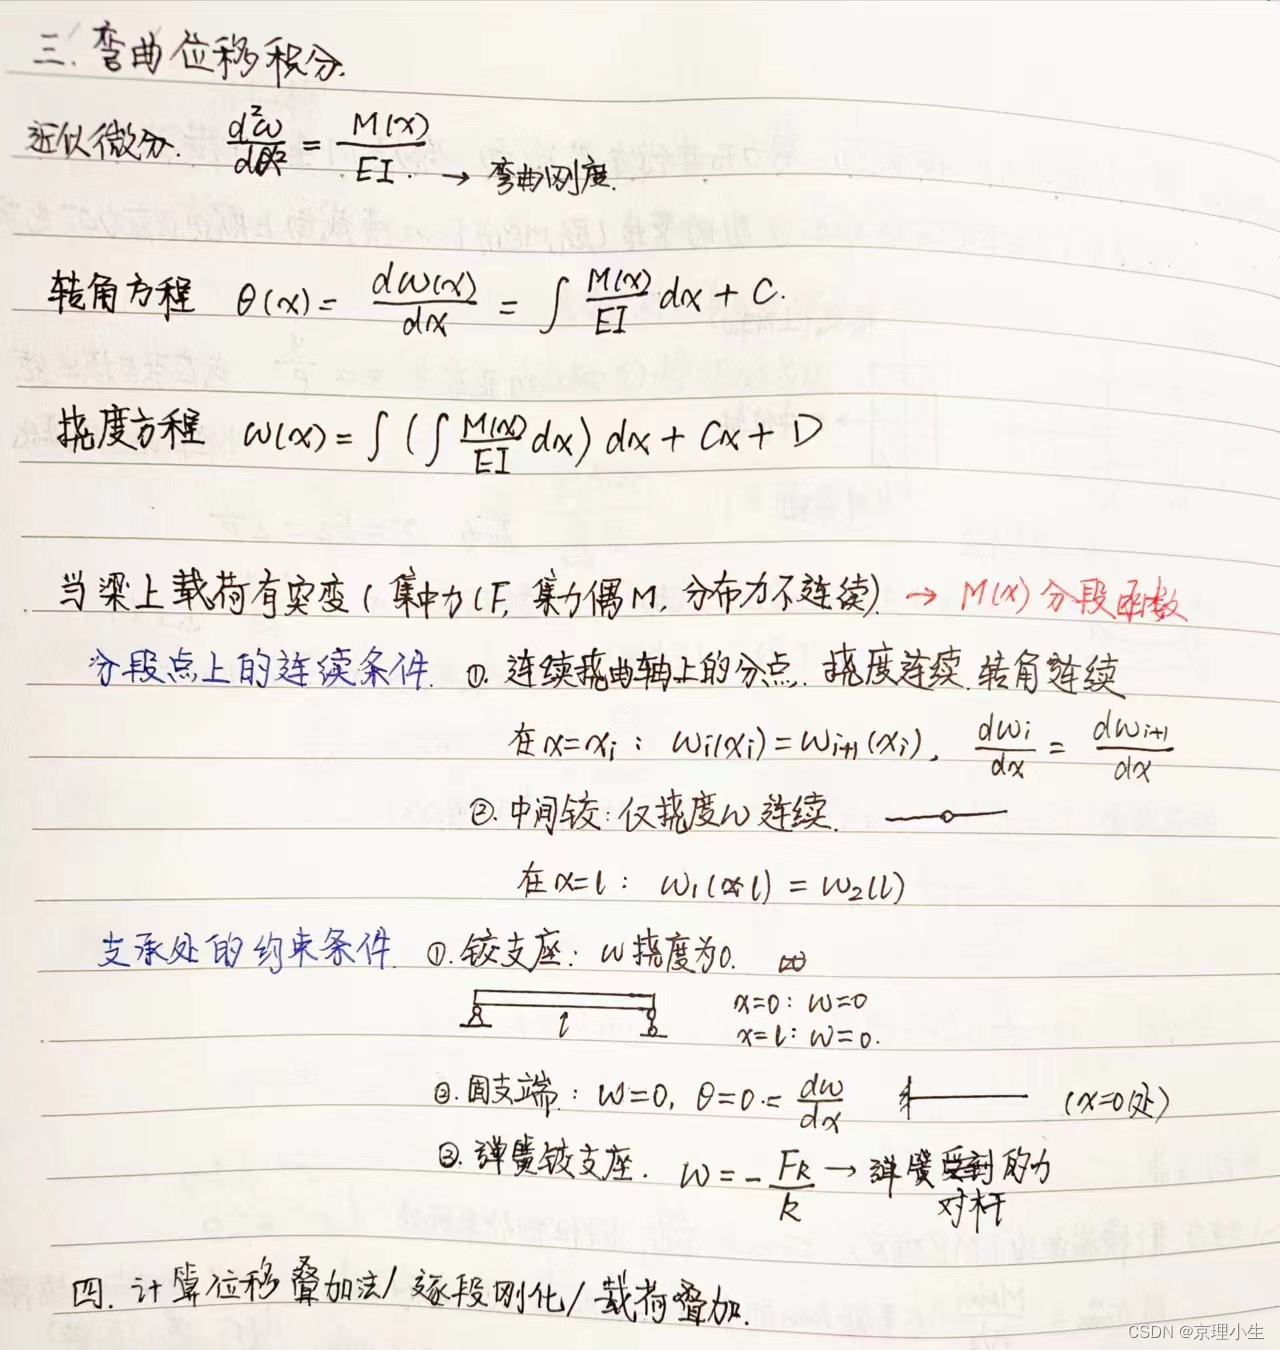 三. 弯曲位移积分.
近似微分. d²ω/dx² = M(x)/EI → 弯曲刚度.
转角方程 θ(x) = dω(x)/dx = ∫ M(x)/EI dx + C.
挠度方程 ω(x) = ∫ (∫ M(x)/EI dx) dx + Cx + D
当梁上载荷有突变 ( 集中力F, 集力偶M, 分布力不连续). → M(x) 分段函数
分段点上的连续条件. ①. 连续挠曲轴上的分点. 挠度连续. 转角连续
在x=xi : ωi(xi) = ωi+1(xi), dωi/dx = dωi+1/dx
②. 中间铰: 仅挠度ω 连续.
在x=l : ω1(l) = ω2(l)
支承处的约束条件. ①. 铰支座: ω 挠度为0.
x=0: ω=0
l x=l: ω=0.
②. 固支端: ω=0, θ=0 = dω/dx (x=0处)
③. 弹簧铰支座. ω = - Fk/k → 弹簧受到的力
对杆
四. 计算位移叠加法/逐段刚化/载荷叠加.
CSDN @京理小生